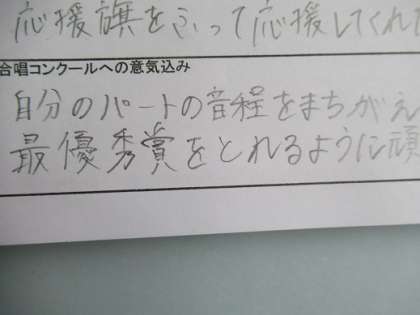 応援旗をふって応援してくれた
合唱コンクールへの意気込み
自分のパートの音程をまちがえ
最優秀賞をとれるように頑